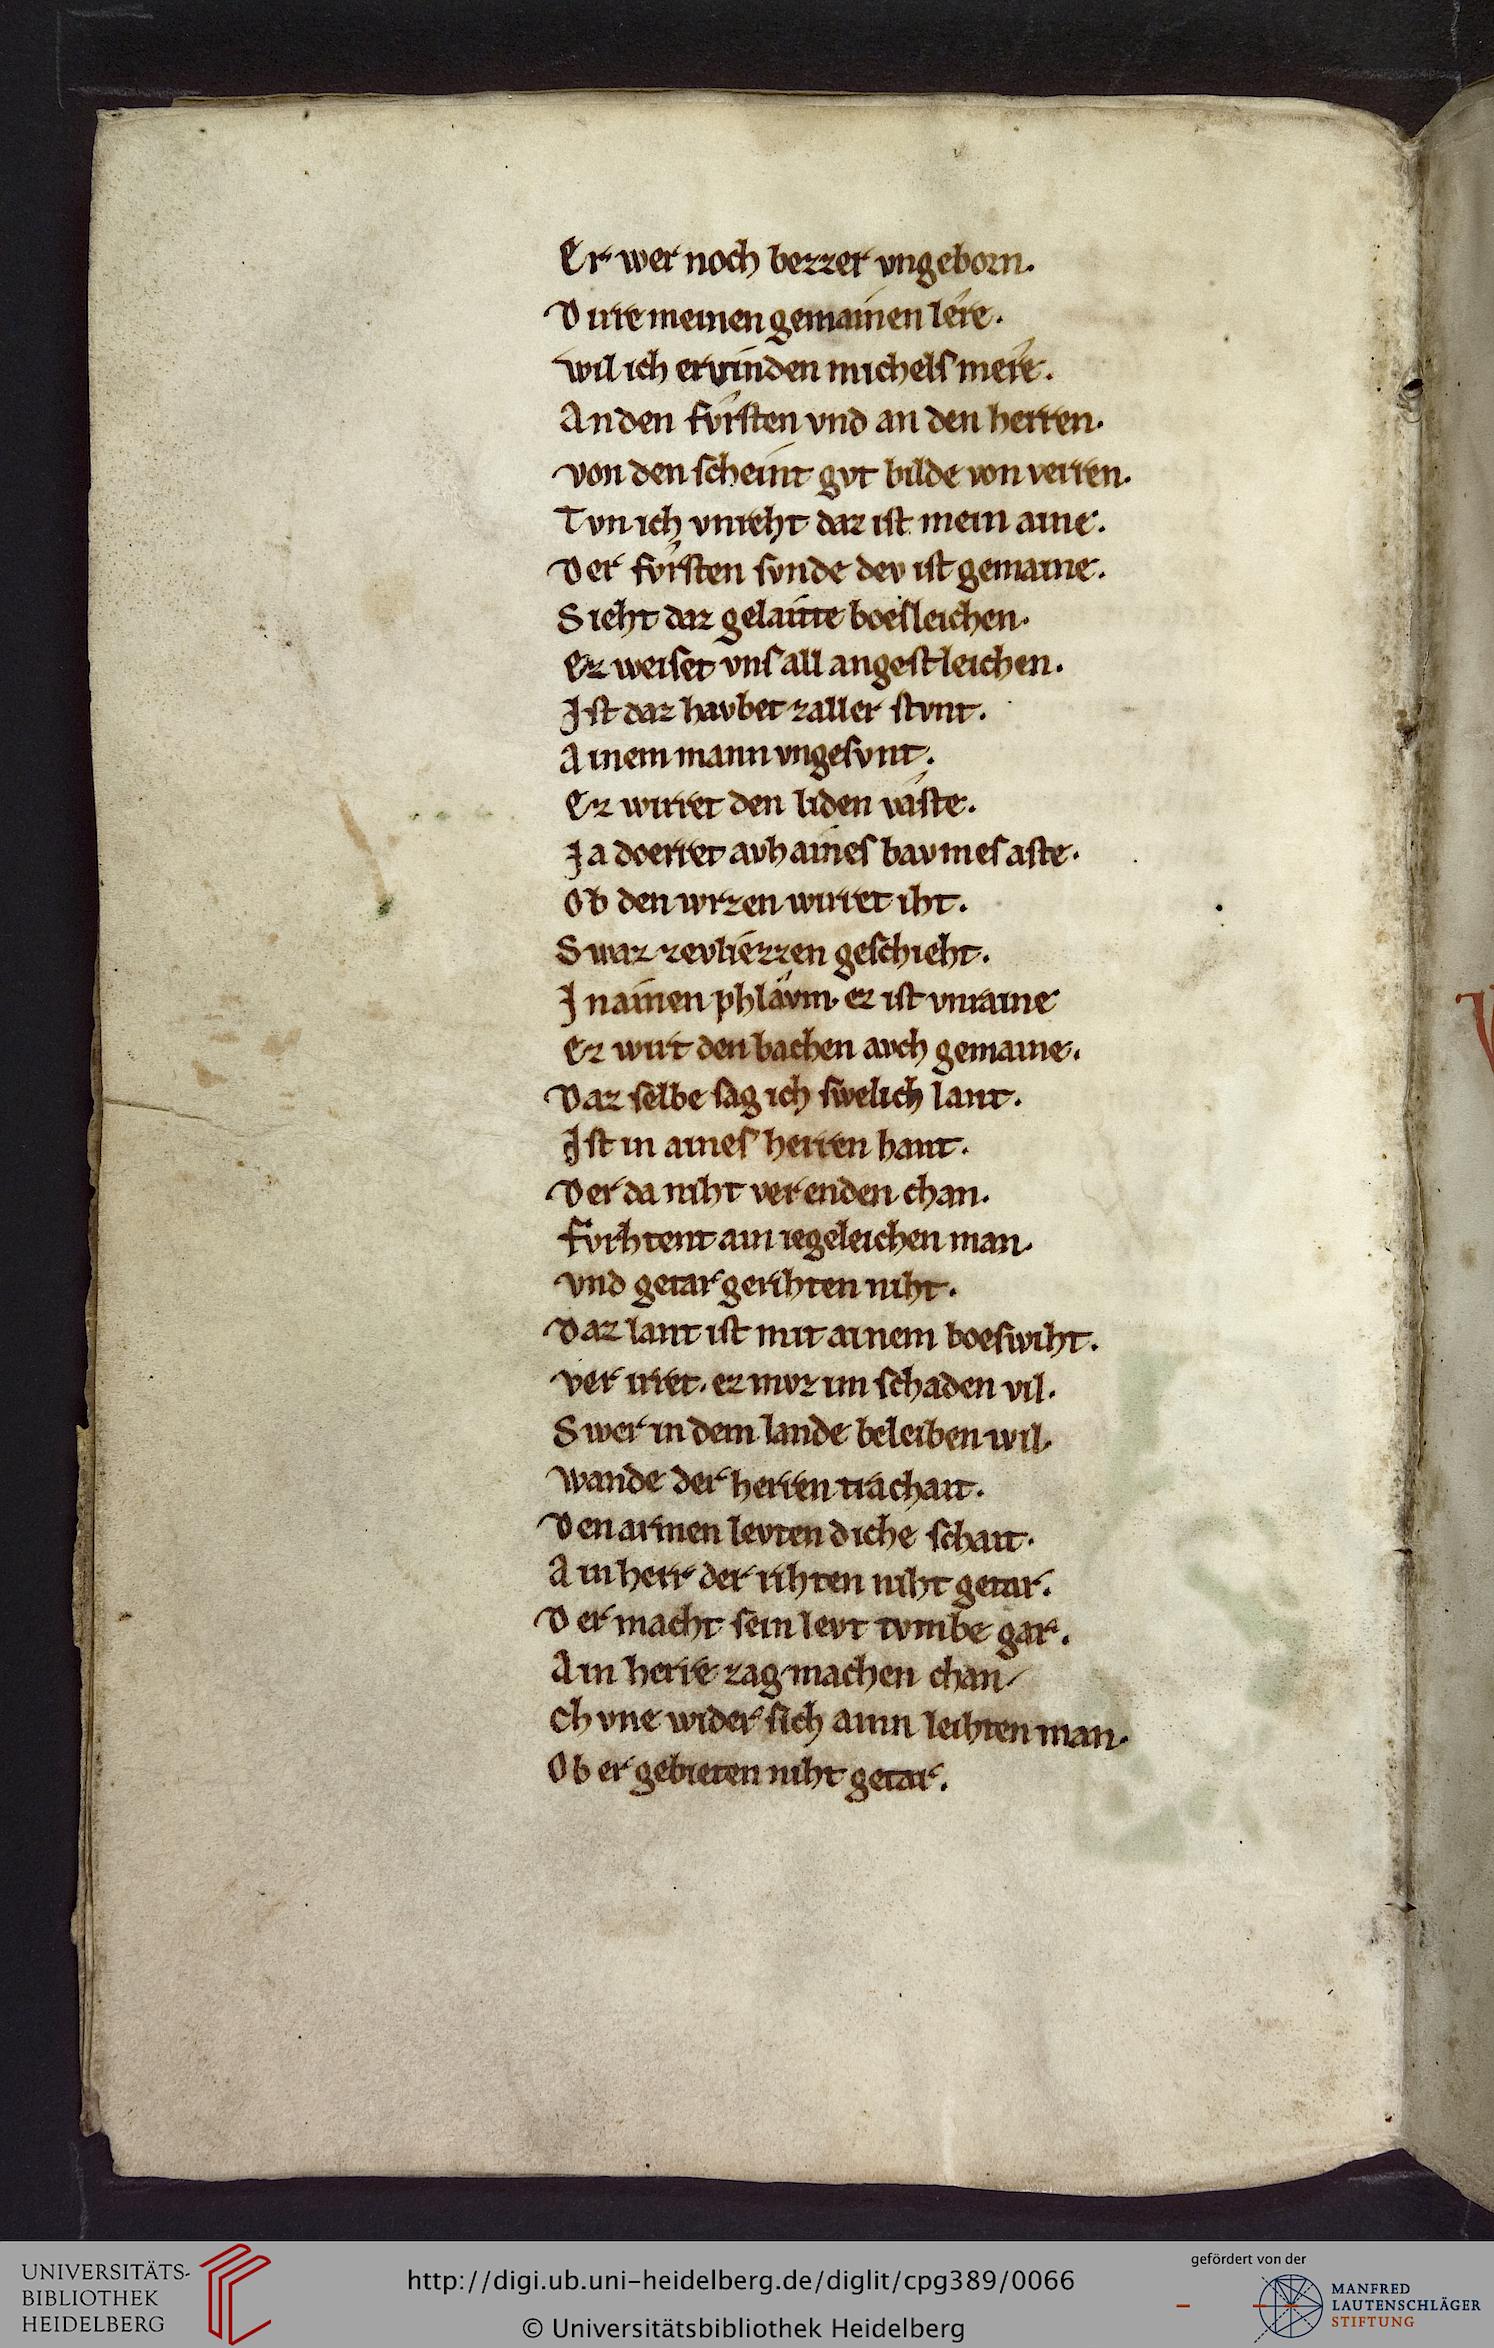 Er wer noch bezzer vngeborn.
Dirre meinen gemainen lere.
wil ich ervinden michels mere.
An den fvrsten vnd an den herren.
von den scheint gvt bilde von verren.
Tvn ich vnreht daz ist mein aine.
Der fvrsten svnde dev ist gemaine.
Sieht daz gelaitte boesleichen.
Ez weiset vns all angestleichen.
Ist daz havbet zaller stvnt.
Ainem mann vngesvnt.
Ez wirret den liden vaste.
Ja doerret avh aines bavmes aste.
Ob den wrzen wirret iht.
Swaz zevliezzen geschieht.
In ainen phlavm. ez ist vnraine
Ez wirt den bachen avch gemaine.
Daz selbe sag ich swelich lant.
Ist in aines herren hant.
Der da niht verenden chan.
fvrhtent ain iegeleichen man.
vnd getar gerihten niht.
Daz lant ist mit ainem boeswiht.
ver irret. ez mvz im schaden vil.
Swer in dem lande beleiben wil.
wande der herren trachait.
Den armen levten diche schait.
Ain herr der rihten niht getar.
Der macht sein levt tvmbe gar.
Ain herre zag machen chan
Chvne wider sich ainn leihten man.
Ob er gebieten niht getar.
UNIVERSITÄTS-
BIBLIOTHEK
HEIDELBERG
http://digi.ub.uni-heidelberg.de/diglit/cpg389/0066
© Universitätsbibliothek Heidelberg
gefördert von der
MANFRED
LAUTENSCHLÄGER
STIFTUNG